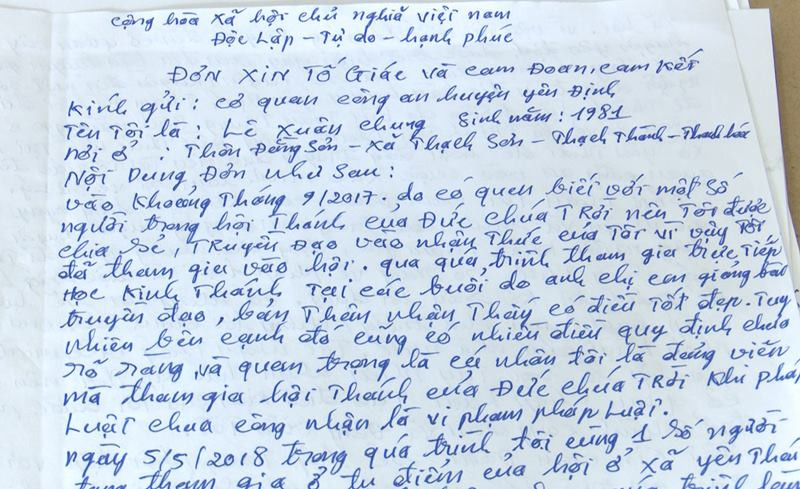 cộng hòa xã hội chủ nghĩa việt nam
Độc Lập - Tự do - hạnh phúc
ĐƠN XIN TỐ GIÁC và cam Đoan, cam kết
Kính gửi: cơ quan công an huyện yên Định
Tên Tôi là: Lê Xuân chung Sinh năm: 1981
nơi ở : Thôn Đồng Sơn - Xã Thạch Sơn - Thạch Thành - Thanh hóa
Nội Dung Đơn như Sau:
vào Khoảng Tháng 9/2017. do có quen biết với một số
người trong hội Thánh của Đức chúa TRời nên Tôi được
chia Sẻ, TRuyền Đạo vào nhận Thức của Tôi vì vậy Tôi
đã tham gia vào hội. qua quá trình tham gia trực Tiếp
Học Kinh Thánh Tại các buổi do anh chị em giảng bài
truyền đạo, bản Thân nhận Thấy có điều Tốt đẹp. Tuy
nhiên bên cạnh đó cũng có nhiều điều quy định chưa
rõ ràng và quan trọng là cá nhân tôi là đảng viên
mà tham gia hội Thánh của Đức chúa TRời Khi pháp
Luật chưa công nhận là vi phạm pháp Luật.
ngày 5/5/2018 trong quá trình tôi cùng 1 Số người
tham gia ở tụ điểm của hội ở xã yên Thái